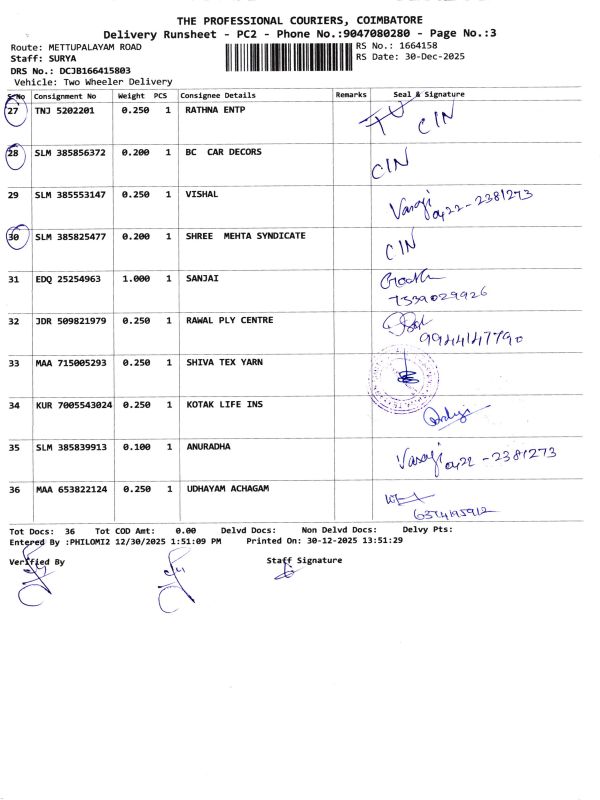 THE PROFESSIONAL COURIERS, COIMBATORE
Delivery Runsheet - PC2 - Phone No.:9047080280 - Page No.:3
Route: METTUPALAYAM ROAD
RS No.: 1664158
Staff: SURYA
RS Date: 30-Dec-2025
DRS No.: DCJB166415803
Vehicle: Two Wheeler Delivery
S.No Consignment No Weight PCS Consignee Details Remarks Seal & Signature
27 TNJ 5202201 0.250 1 RATHNA ENTP CIN
28 SLM 385856372 0.200 1 BC CAR DECORS CIN
29 SLM 385553147 0.250 1 VISHAL 0422-2381273
30 SLM 385825477 0.200 1 SHREE MEHTA SYNDICATE CIN
31 EDQ 25254963 1.000 1 SANJAI
7339029926
32 JDR 509821979 0.250 1 RAWAL PLY CENTRE
9944147790
33 MAA 715005293 0.250 1 SHIVA TEX YARN
34 KUR 7005543024 0.250 1 KOTAK LIFE INS
35 SLM 385839913 0.100 1 ANURADHA 0422-2381273
36 MAA 653822124 0.250 1 UDHAYAM ACHAGAM
6374195912
Tot Docs: 36 Tot COD Amt: 0.00 Delvd Docs: Non Delvd Docs: Delvy Pts:
Entered By :PHILOMI2 12/30/2025 1:51:09 PM Printed On: 30-12-2025 13:51:29
Verified By Staff Signature